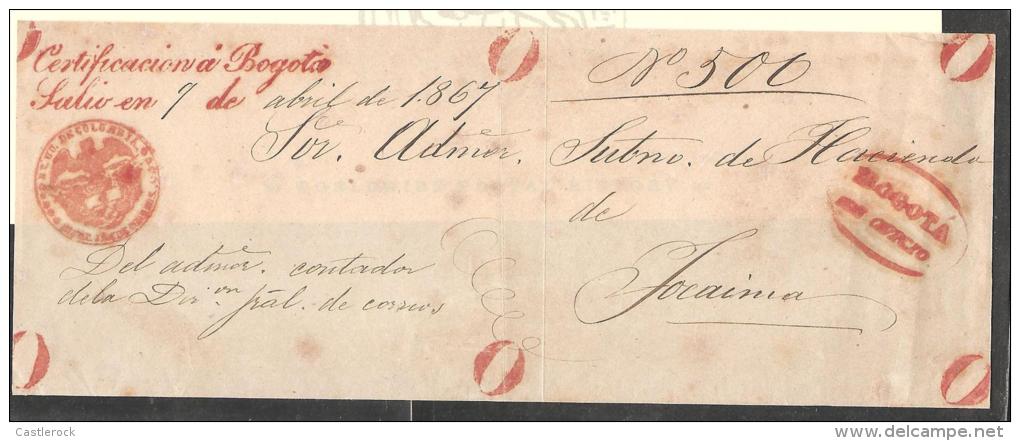 Certificacion á Bogotá
Salio en 9 de abril de 1.867
No 506
Sor. Admor. Subno. de Hacienda
de
Tocaima
BOGOTÁ
DE OFICIO
Del admor. contador
dela Diron. jral. de correos
Castlerock
delcampe.net